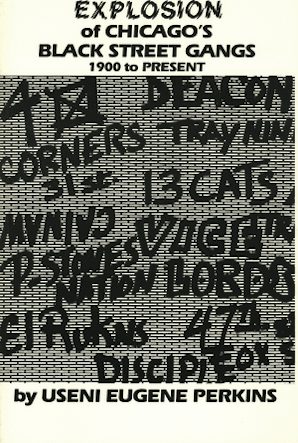 EXPLOSION
of CHICAGO'S
BLACK STREET GANGS
1900 to PRESENT
4 DEACON
CORNERS TRAY NIN
31st 13 CATS
VICE
P. STONES LORDS
NATION
El Rukns 47th
DISCIPLE
by USENI EUGENE PERKINS